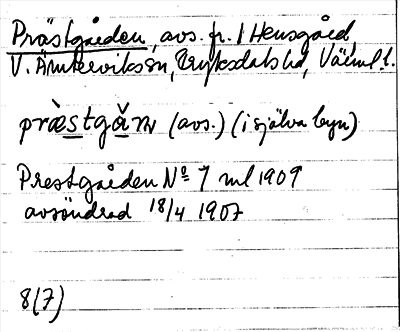 Prästgården, avs. fr. 1 Hensgård,
V. Ämterviks sn, Fryksdals hd, Värml. l.
præ̀stgå̆ɳ (avs.) (i själva byn)
Prestgården No 7 ml 1909
avsöndrad 18/4 1907
8(7)